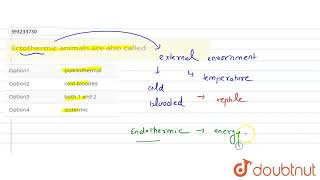 393233730
Ectothermic animals are also called
Option1 poikilothermal
Option2 cold-blooded
Option3 both 1 and 2
Option4
external environment
↳ temperature
cold
blooded → reptile
Endothermic → energy
doubtnut